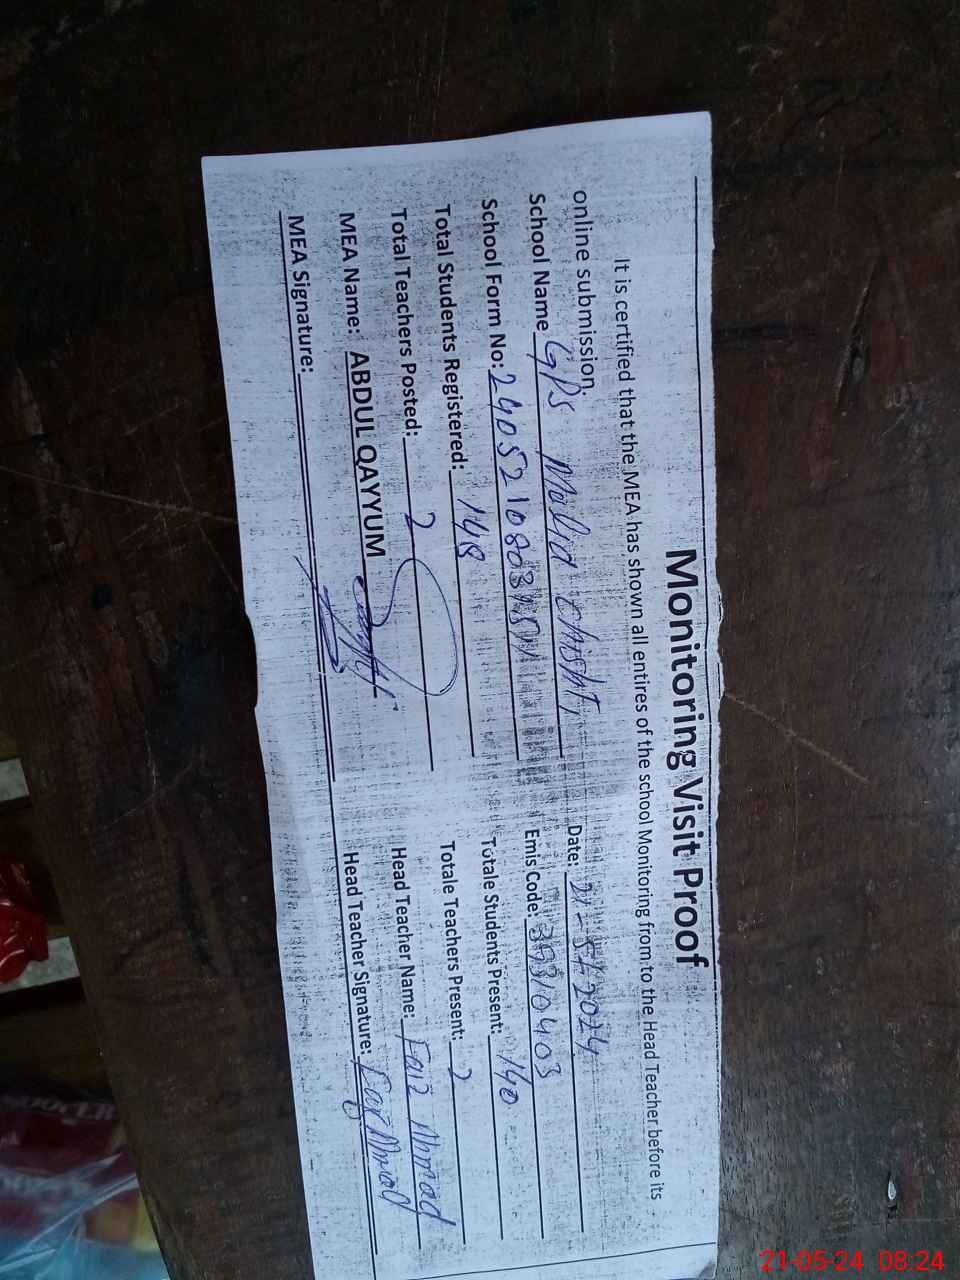 Monitoring Visit Proof
It is certified that the MEA has shown all entires of the school Monitoring from to the Head Teacher before its
online submission
School Name GPS Molid chishti Date: 21-5-2024
School Form No: Emis Code: 39310403
Total Students Registered: 148 Totale Students Present: 140
Total Teachers Posted: 2 Totale Teachers Present: 2
MEA Name: ABDUL QAYYUM Head Teacher Name: Faiz Ahmad
MEA Signature: Head Teacher Signature: Faiz Ahmad
21-05-24 08:24